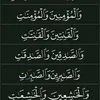 وَالْمُؤْمِنِينَ وَالْمُؤْمِنَٰتِ
وَالْقَٰنِتِينَ وَالْقَٰنِتَٰتِ
وَالصَّٰدِقِينَ وَالصَّٰدِقَٰتِ
وَالصَّٰبِرِينَ وَالصَّٰبِرَٰتِ
وَالْخَٰشِعِينَ وَالْخَٰشِعَٰتِ